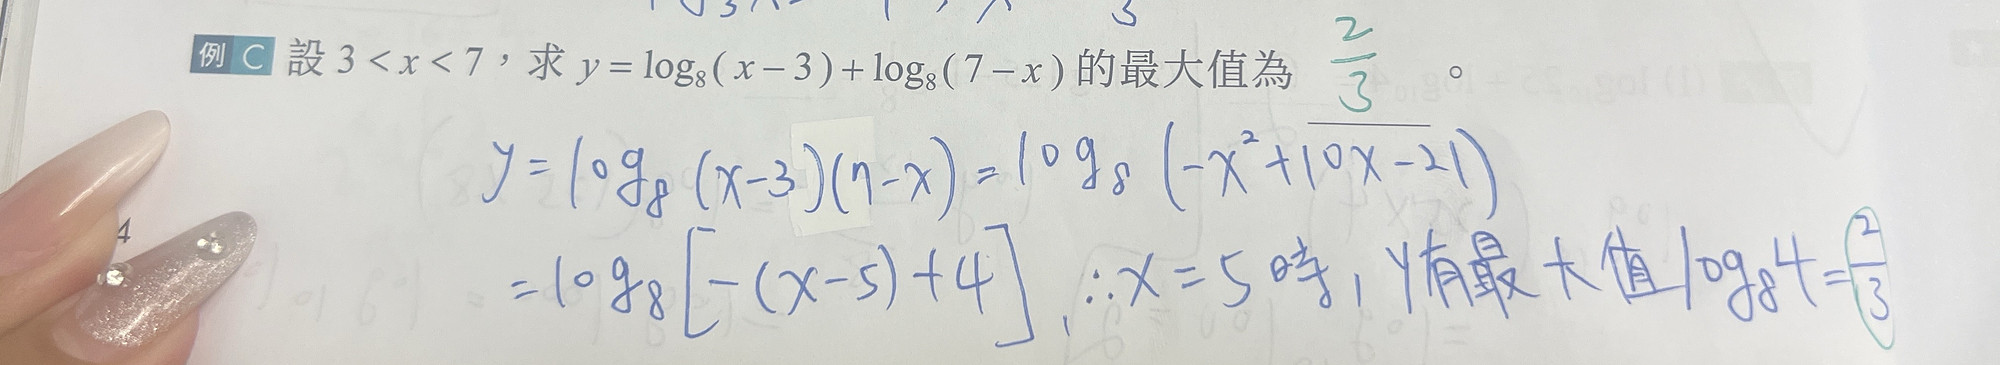 例 C 設 3 < x < 7，求 y = log₈( x − 3 ) + log₈( 7 − x ) 的最大值為 2/3 。
y = log₈ (x-3)(7-x) = log₈ (-x²+10x-21)
= log₈ [-(x-5)+4], ∴x = 5 時, y有最大值log₈4 = 2/3
4